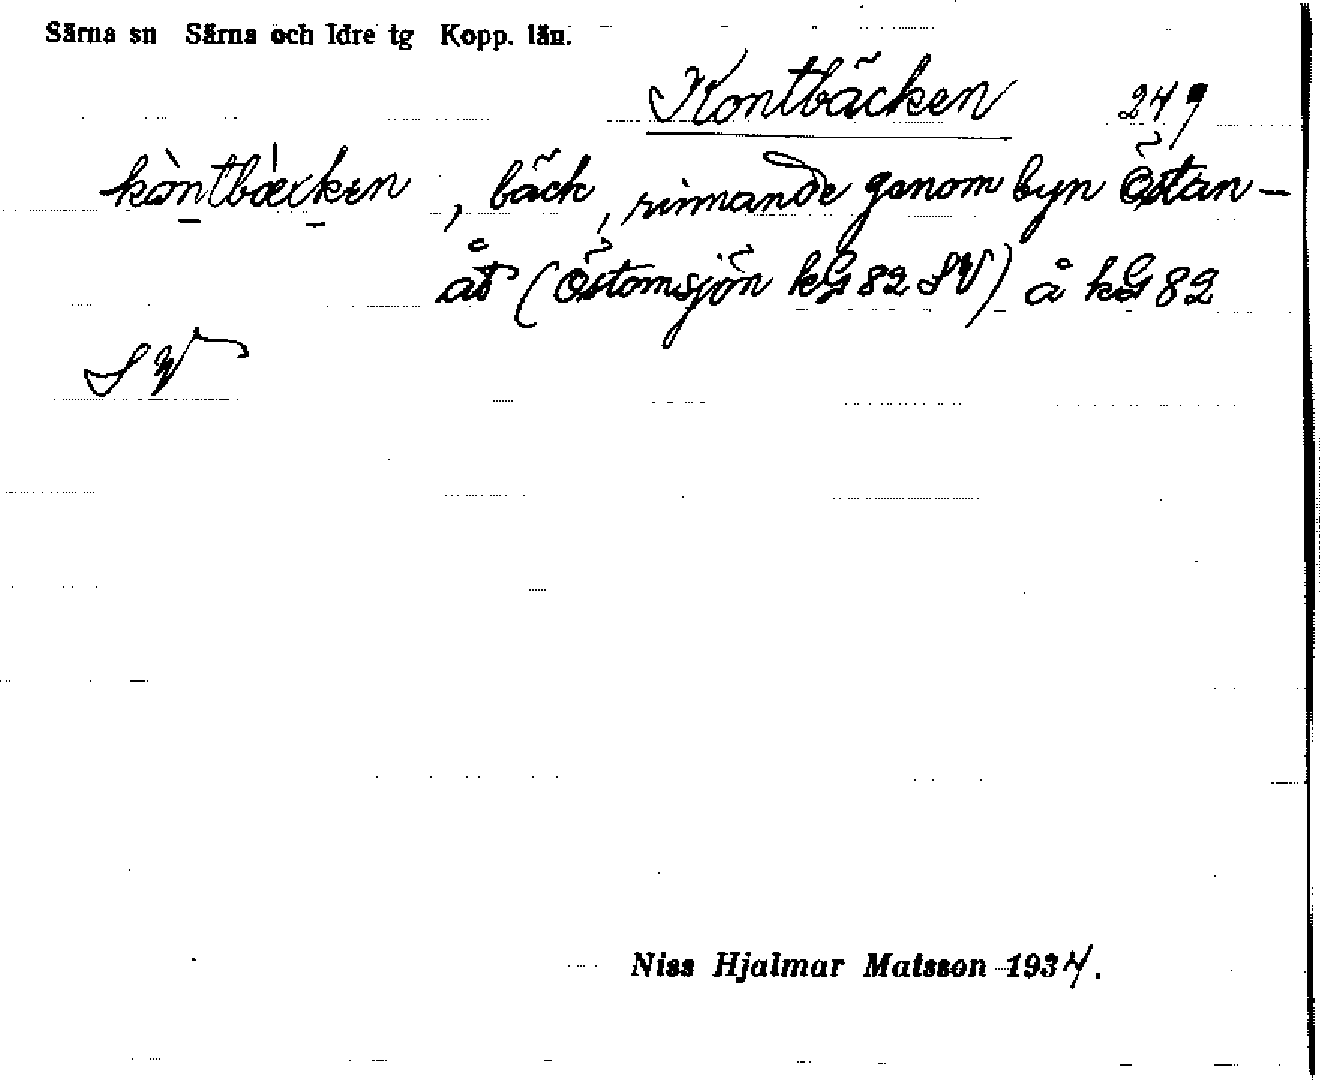 Särna sn Särna och Idre tg Kopp. län.
Kontbäcken 249
kòntbækken, bäck, rinnande genom byn Östan-
åt (Östomsjön kG 82 SV) å kG 82
SV
Niss Hjalmar Matsson 1934.